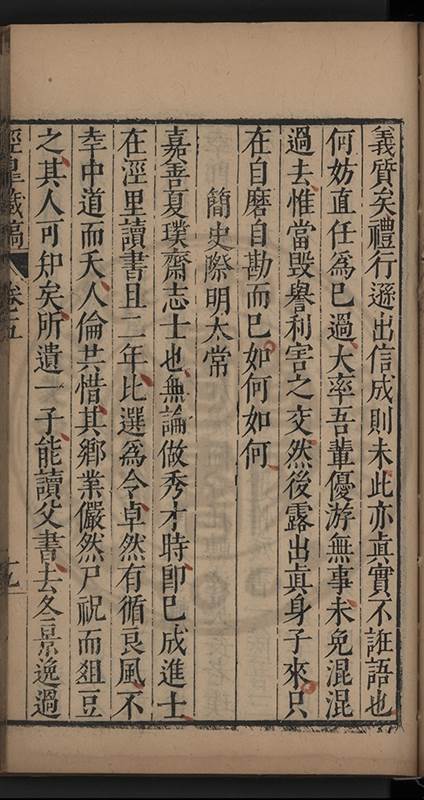 義質矣禮行遜出信成則未此亦眞實不誑語也
何妨直任爲已過大率吾輩優游無事未免混混
過去惟當毀譽利害之交然後露出眞身子來只
在自磨自勘而已如何如何
簡史際明太常
嘉善夏璞齋志士也無論做秀才時卽已成進士
在涇里讀書且二年比選爲令卓然有循良風不
幸中道而夭人倫共惜其鄉業儼然尸祝而俎豆
之其人可知矣所遺一子能讀父書去冬景逸過
涇臯藏稿 卷五